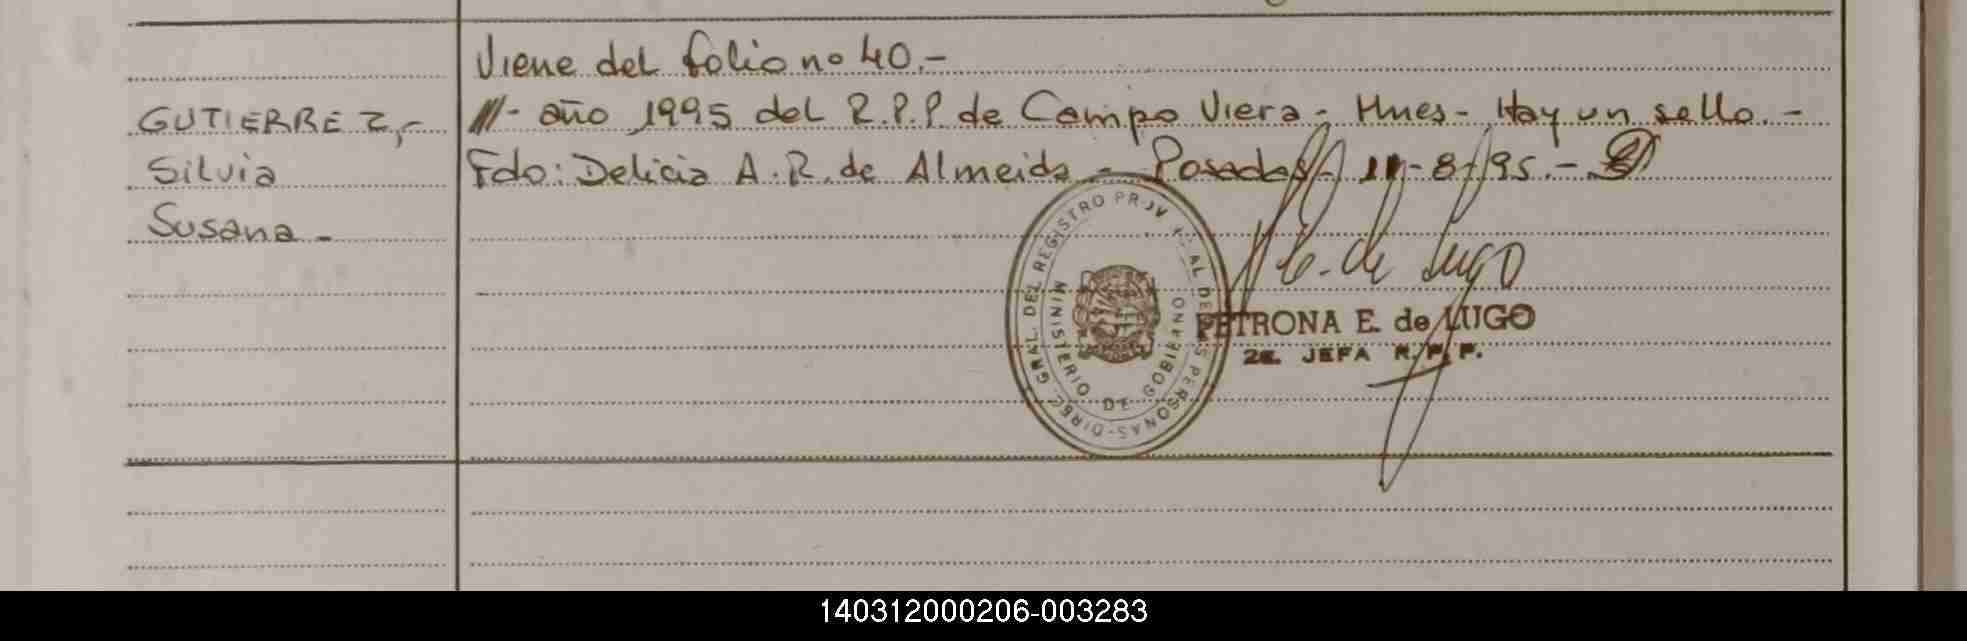 Viene del folio no 40.-
GUTIERREZ,- ///- año 1995 del R.P.P. de Campo Viera - Mnes - Hay un sello. -
Silvia Fdo: Delicia A. R. de Almeida - Posadas, 11-8-95.-
Susana -
DIREC. GRAL. DEL REGISTRO PROVINCIAL DE LAS PERSONAS-
MINISTERIO DE GOBIERNO
E. de Lugo
PETRONA E. de LUGO
2a. JEFA R.P.P.
140312000206-003283